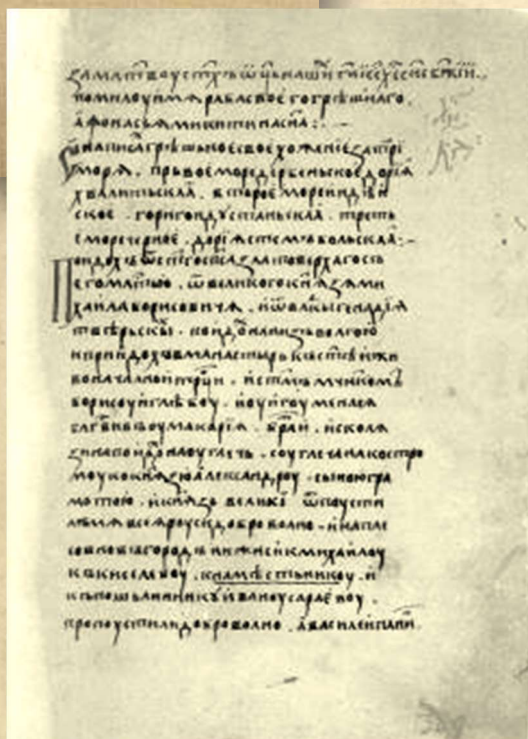 за мл҃тву ст҃хъ ѿц҃ь нашиⷯ гⷭ҇и іс҃е хе҃ сн҃е бж҃їи.
помилоуи мѧ раба своего грѣшнаго.
аѳонасьѧ микитина сн҃а :·
Се написах грѣшьное свое хоженїе за три
морѧ . прьвое море дербеньское дорїа
хвалитьскаа . второе море индѣи
ское . горигондустаньскаа . треть
е море черное . дорїа стемъбольскаа :·
Поидохъ ѿ сп҃са ст҃го златоверхаго съ
его млⷭтїю . ѿ великого кнѧзѧ ми
хаила борисовичѧ . и ѿ влⷣкы генадїа
тверьскыⷯ . поидоⷯ на низъ волгою
и приидохъ в манастырь къ ст҃ѣи жи
воначалнои трⷪци . и ст҃ымъ мч҃нкомъ
борисоу и глѣбоу . и оу игоумена сѧ
блгⷭвивъ оу макарїа . братїи . и с колѧ
зина поидоⷯ на оуглечь . с оуглеча на костро
моу ко кнѧзю александроу . съ иною гра
мотою . и кнѧзь великїи ѿпоусти
лъ мѧ всеа роуси доброволно . и на пле
со в новъгород в нижнеи к михаилоу
к киселевоу . к намѣстьникоу . и
къ пошьлинникоу иваноу сараевоу .
пропоустили доброволно . а василеи папиⷩ